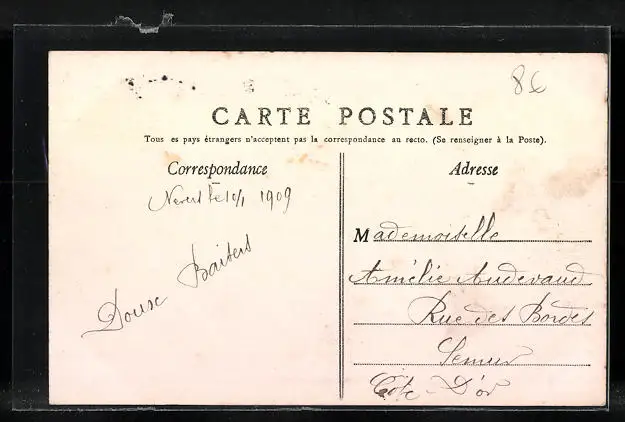 86
CARTE POSTALE
Tous es pays étrangers n'acceptent pas la correspondance au recto. (Se renseigner à la Poste).
Correspondance
1909
Doux Baisers
Adresse
Mademoiselle
Amélie Andevaud
Rue des Bordes
Semur
Côte-D'or